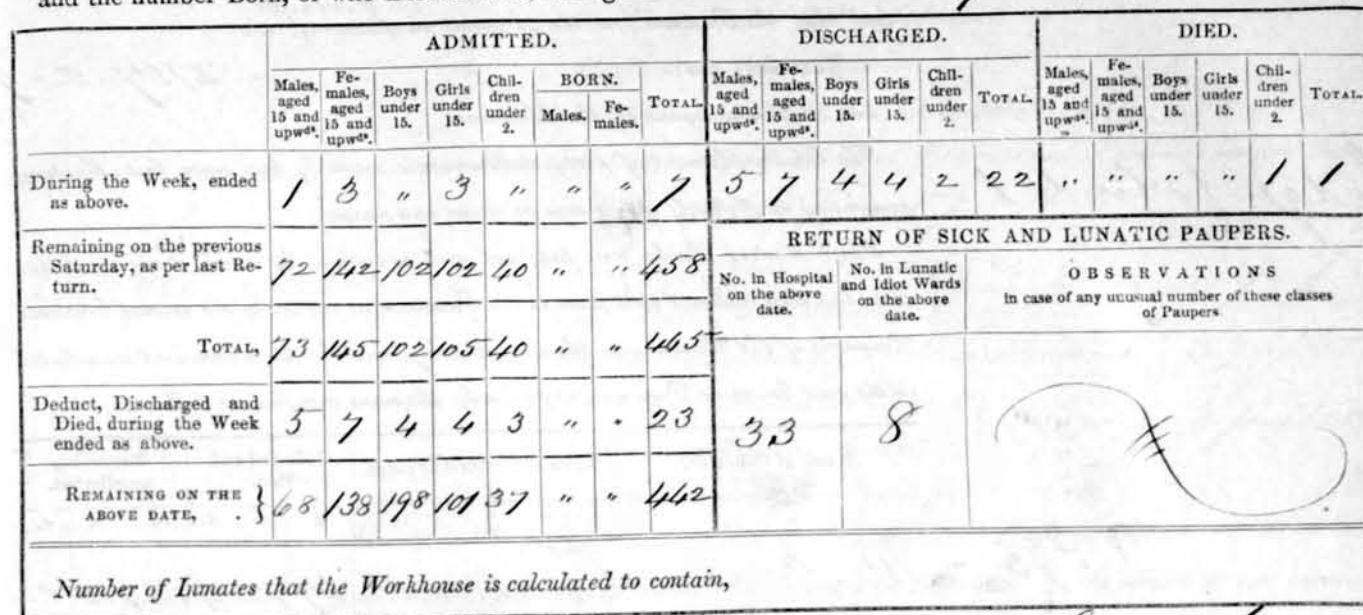 and the number Born, or who
ADMITTED. DISCHARGED. DIED.
Males, aged 15 and upwds. Females, aged 15 and upwds. Boys under 15. Girls under 15. Children under 2. BORN. Males. Females. TOTAL. Males, aged 15 and upwds. Females, aged 15 and upwds. Boys under 15. Girls under 15. Children under 2. TOTAL. Males, aged 15 and upwds. Females, aged 15 and upwds. Boys under 15. Girls under 15. Children under 2. TOTAL.
During the Week, ended as above. 1 3 " 3 " " " 7 5 7 4 4 2 22 " " " " 1 1
Remaining on the previous Saturday, as per last Return. 72 142 102 102 40 " " 458
TOTAL, 73 145 102 105 40 " " 465
Deduct, Discharged and Died, during the Week ended as above. 5 7 4 4 3 " " 23
REMAINING ON THE ABOVE DATE, . } 68 138 198 101 37 " " 442
RETURN OF SICK AND LUNATIC PAUPERS.
No. in Hospital on the above date. No. in Lunatic and Idiot Wards on the above date. OBSERVATIONS in case of any unusual number of these classes of Paupers
33 8
Number of Inmates that the Workhouse is calculated to contain,